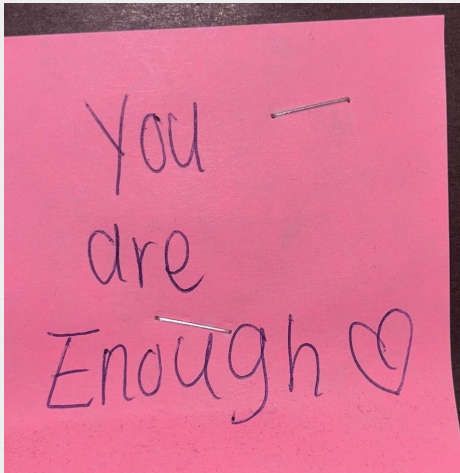 You
are
Enough ♡